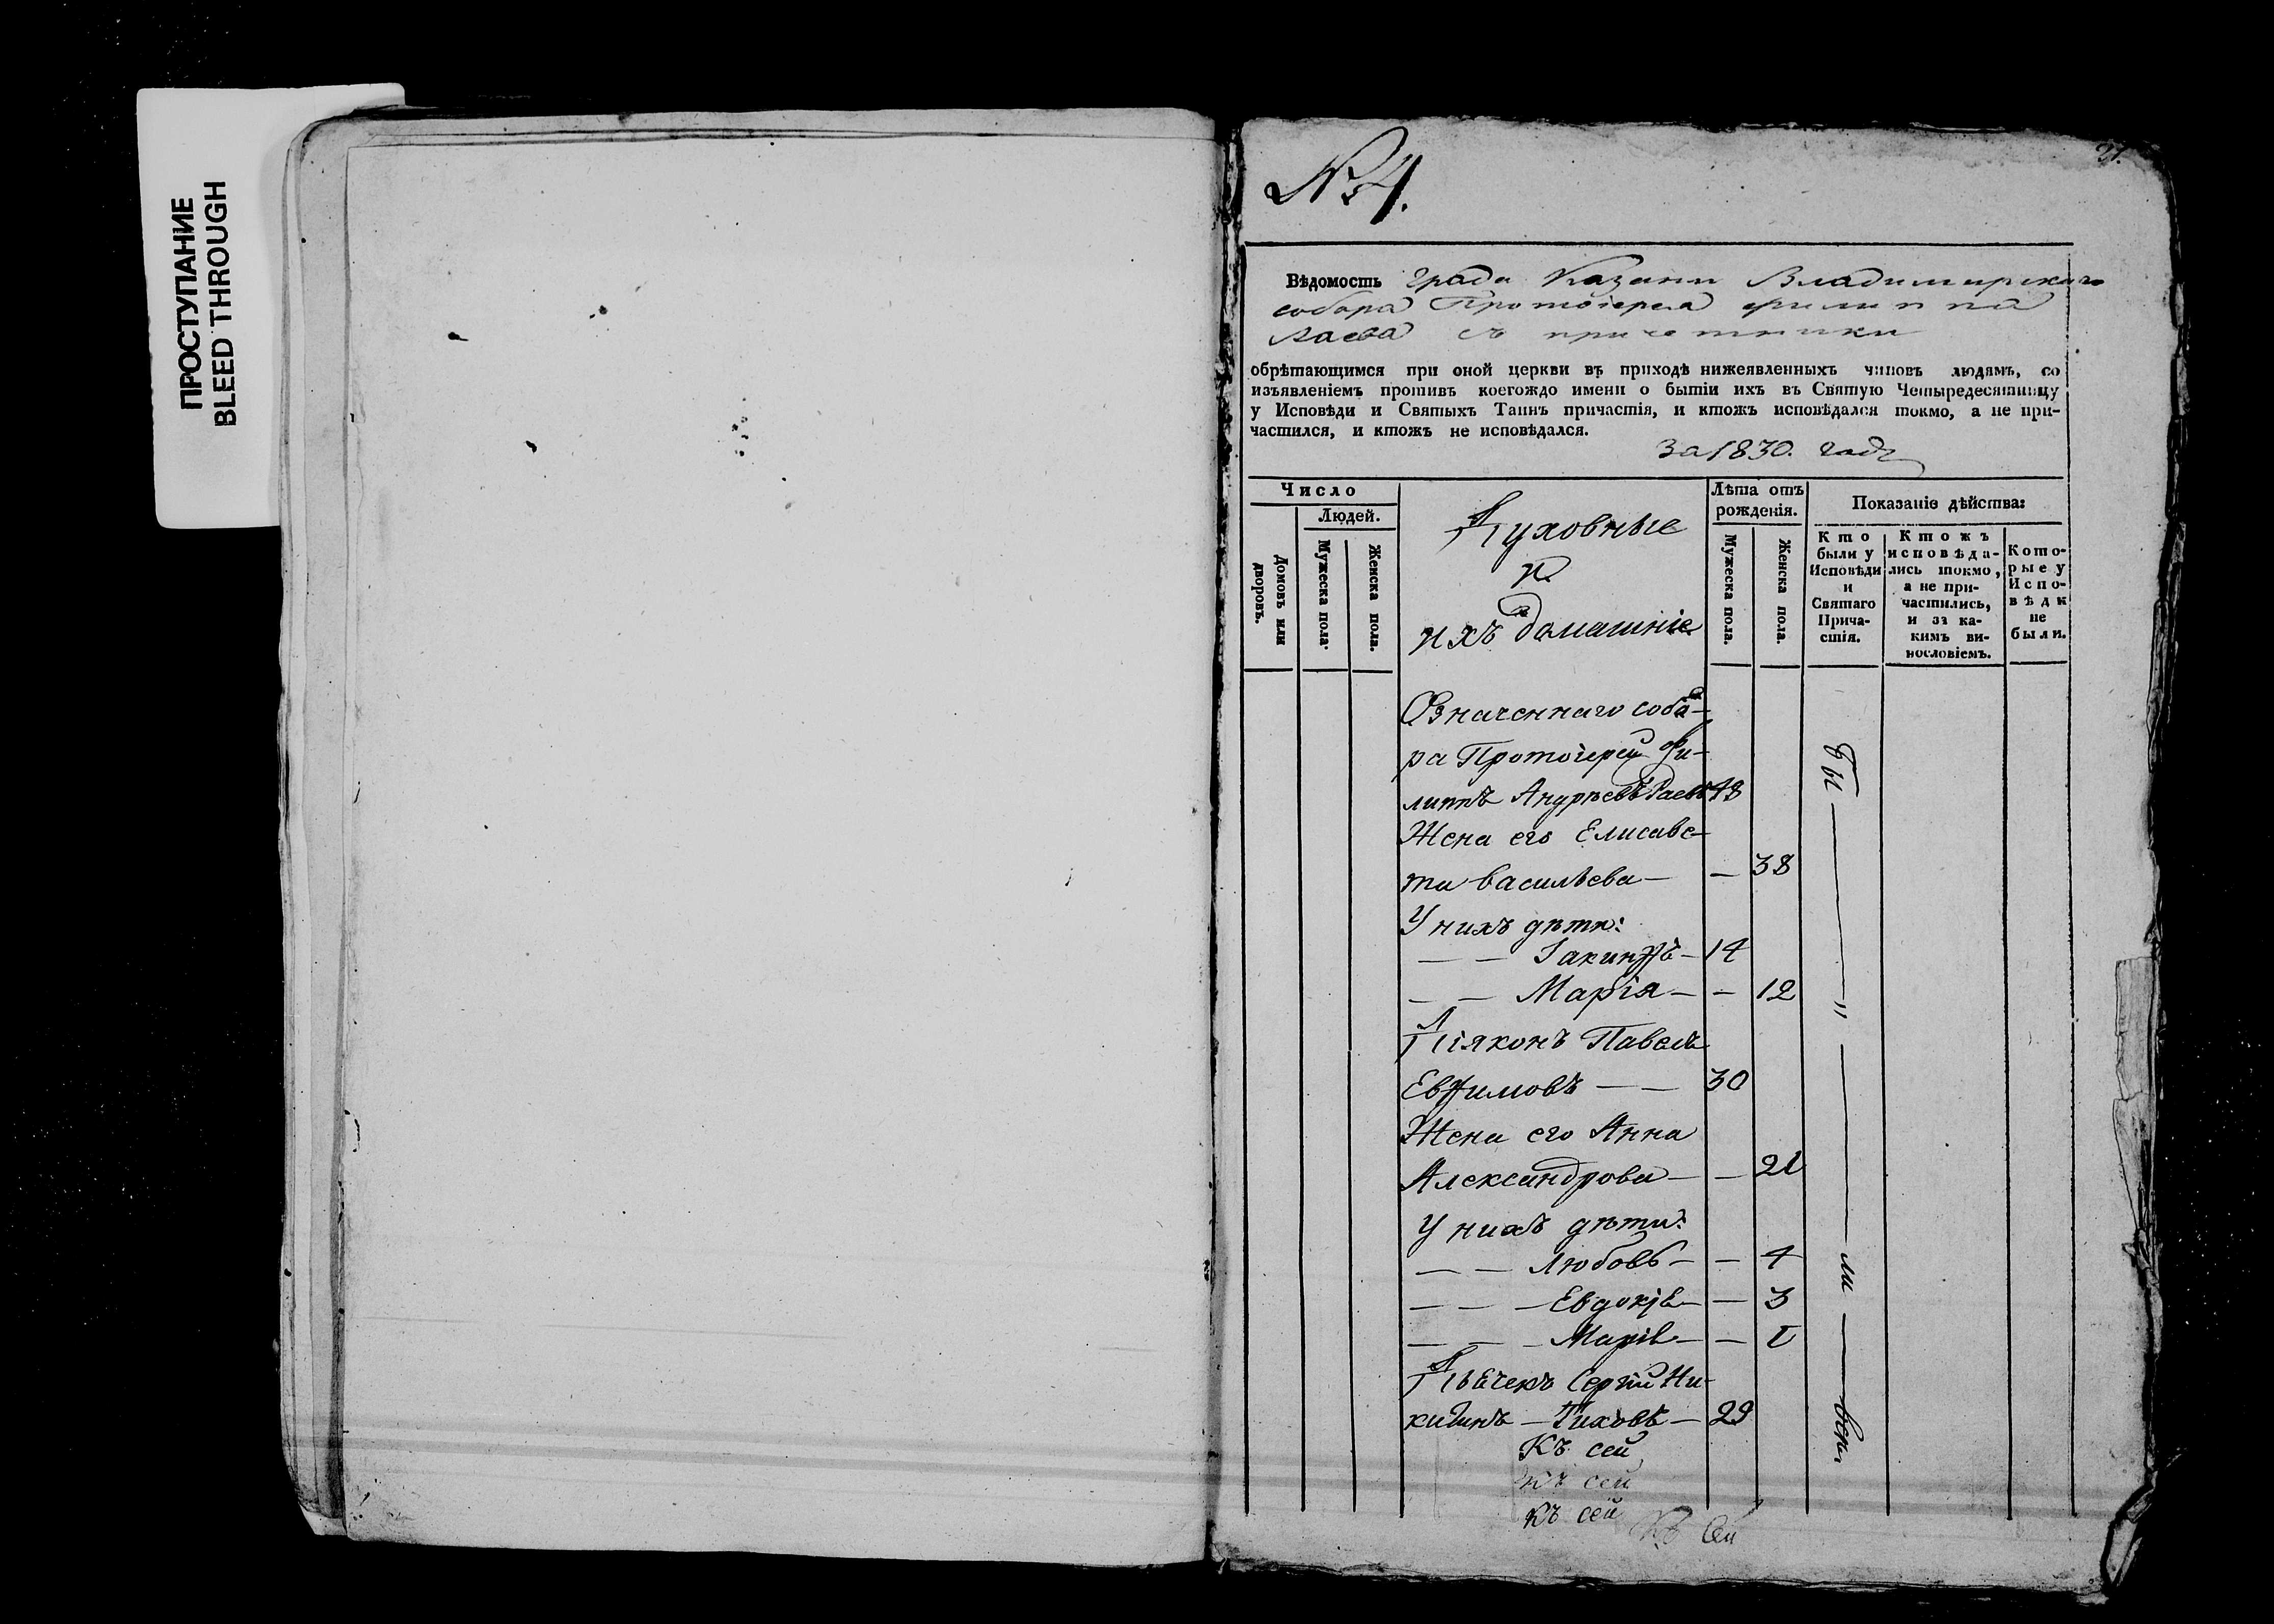 ПРОСТУПАНИЕ
BLEED THROUGH
№ 4.
21.
Вѣдомость града Казани Владимирскаго
собора Протоіерея Филиппа
Раева съ причетники
обрѣтающимся при оной церкви въ приходѣ нижеявленныхъ чиновъ людямъ, со
изъявленіемъ противъ коегождо имени о бытіи ихъ въ Святую Четыредесятницу
у Исповѣди и Святыхъ Таинъ причастія, и ктожъ исповѣдался токмо, а не при-
частился, и ктожъ не исповѣдался.
За 1830. годъ
Число
Людей.
Домовъ или дворовъ.
Мужеска пола.
Женска пола.
Духовные
и
ихъ домашніе
Лѣта отъ
рожденія.
Мужеска пола.
Женска пола.
Показаніе дѣйства:
Кто
были у
Исповѣди
и
Святаго
Прича-
стія.
Ктожъ
исповѣда-
лись токмо,
а не при-
частились,
и за ка-
кимъ ви-
нословіемъ.
Кото-
рые у
Испо-
вѣди
не
были.
Означеннаго собо-
ра Протоіерей Фи-
липпъ Андреевъ Раевъ 48
Жена его Елисаве-
та Васильева — — 38
У нихъ дѣти:
— — Іакинѳъ — 14
— — Марія — — 12
Діяконъ Павелъ
Евѳимовъ — — 30
Жена его Анна
Александрова — — 21
У нихъ дѣти:
— — Любовь — — 4
— — — Евдокія — — 3
— — — Марія — — 1
Дьячекъ Сергій Ни-
китинъ — Тиховъ — 29
Къ сей
къ сей
къ сей
Къ Сей
бы — " — ли — вси